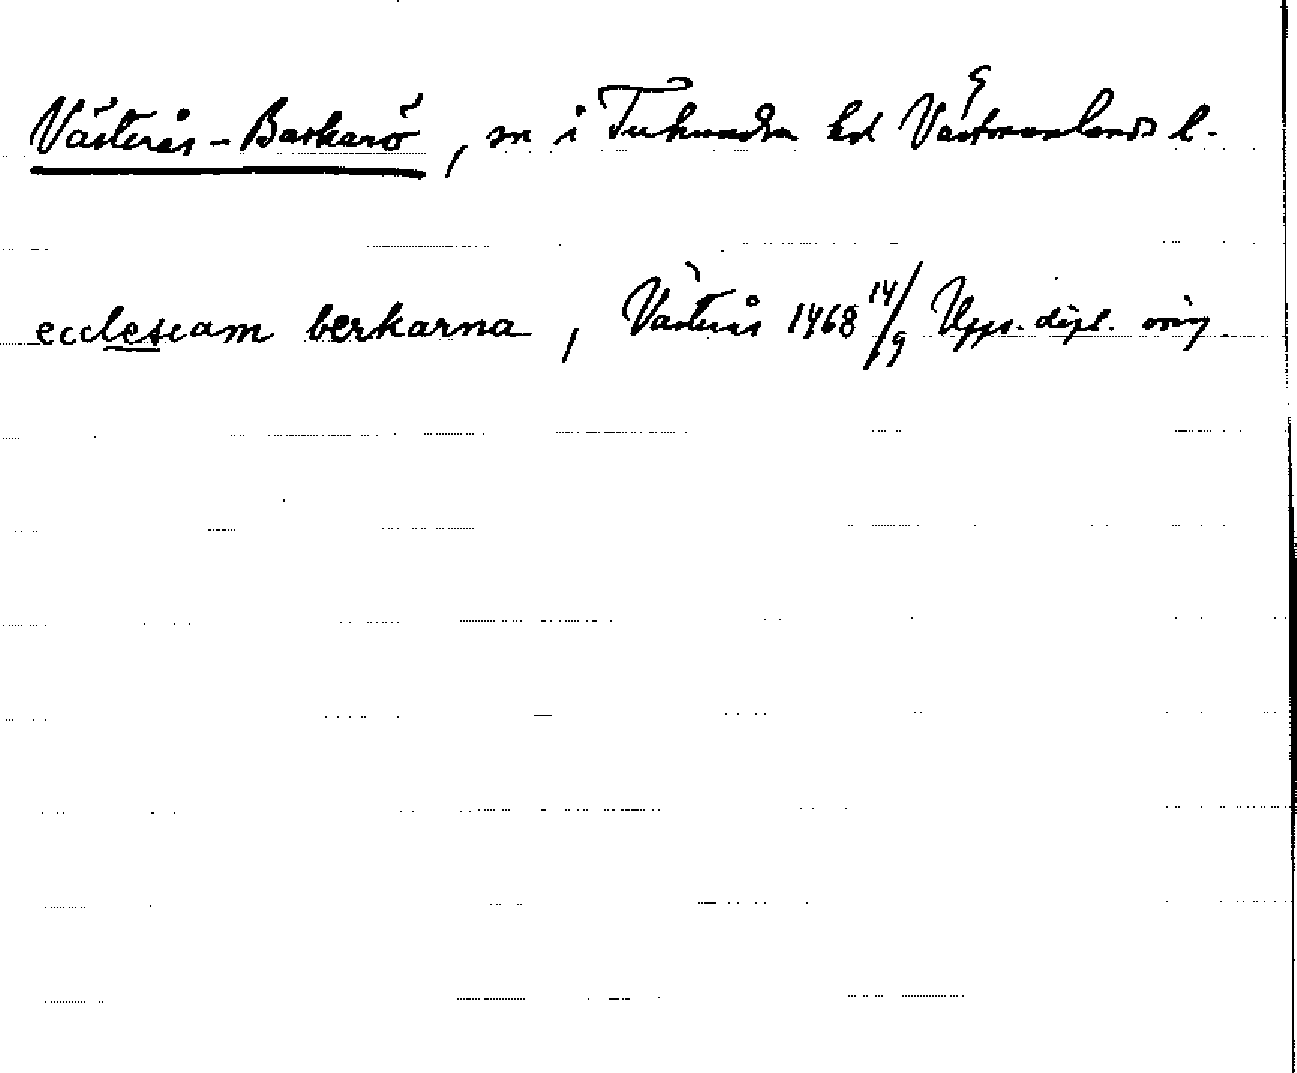 Västerås-Barkarö, sn i Tuhundra hd Västmanlands l.
ecclesiam berkarna, Västerås 1468 14/9 Upps. dipl. orig